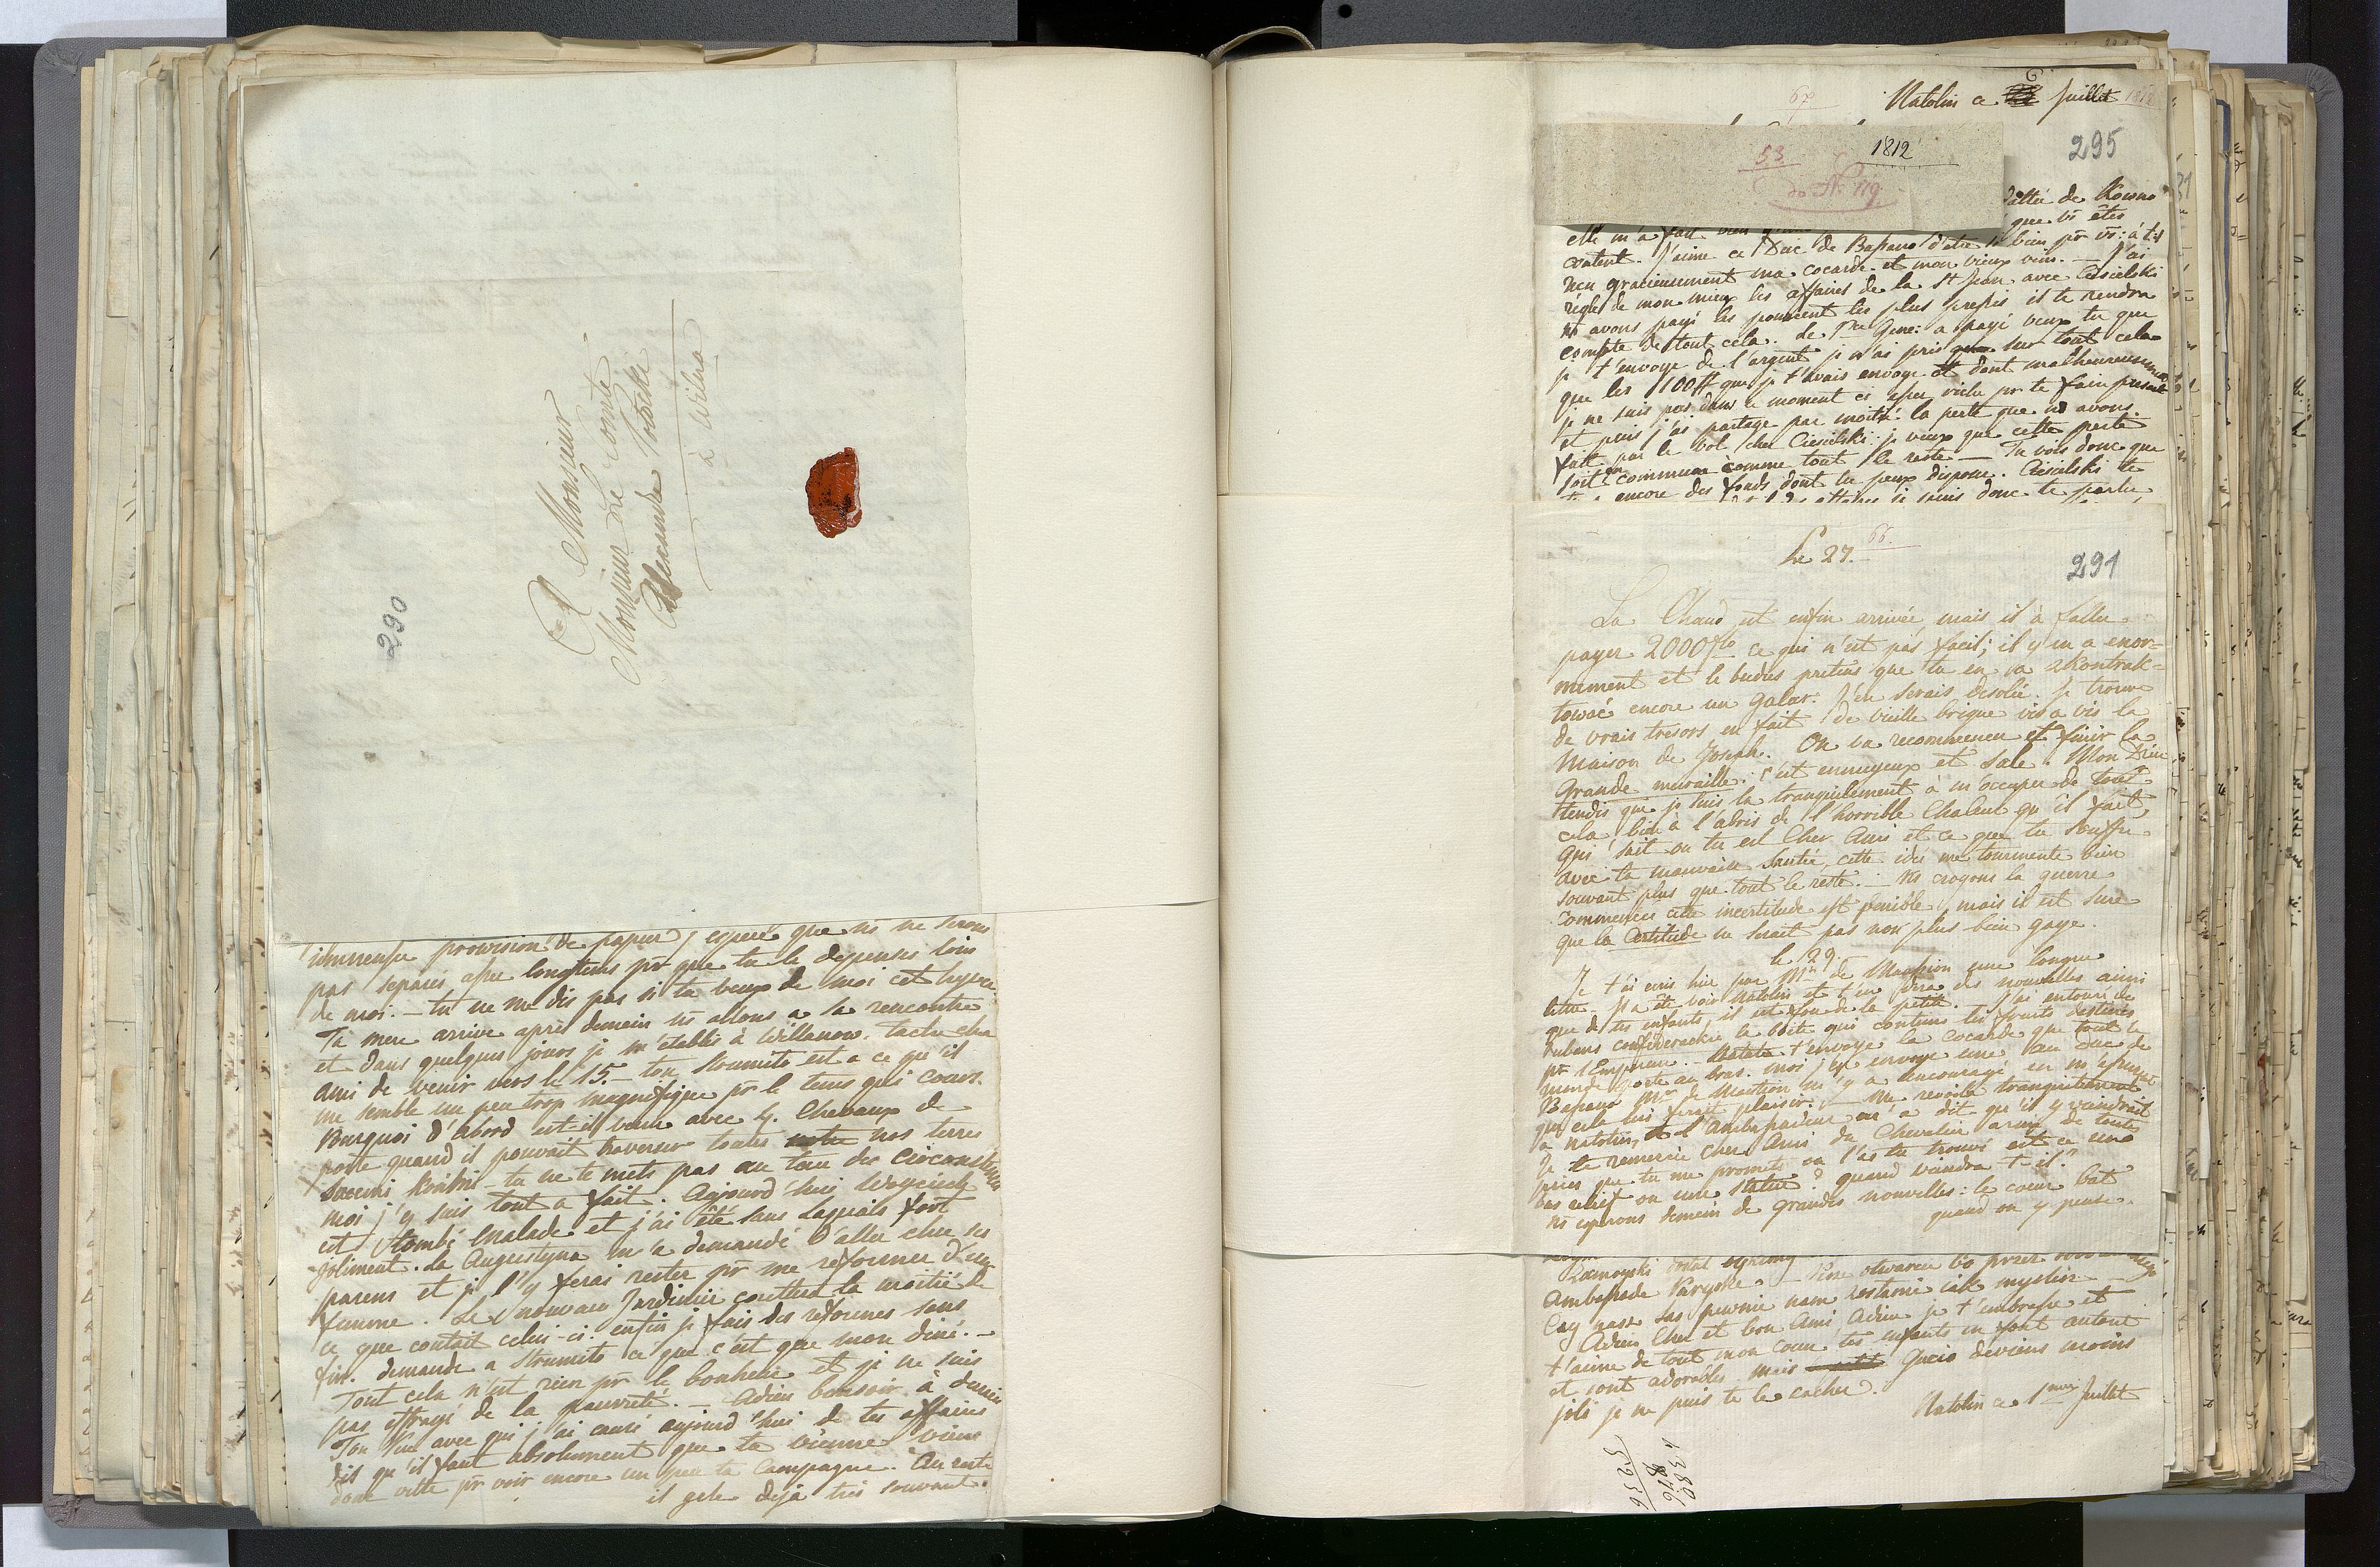 A Monsieur
Monsieur Le Comte
Alexandre Potocki
à Wilna
290
immense provision de papier j'espere que ns ne serons
pas separés assez longtems pr que tu le depenses loin
de moi. — tu ne me dis pas si tu veux de moi cet hyver
Ta mere arrive après demain ns allons a sa rencontre
et dans quelques jours je m'etablis à Willanow. tache cher
ami de venir vers le 15. — ton Strumito est a ce qu'il
me semble un peu trop magnifique pr le tems qui cours.
Pourquoi d'abord est-il venu avec 4. Chevaux de
poste quand il pouvait traverser toutes nos terres
tu ne te mets pas au ton des circonstances
moi j'y suis tout a fait. Aujourd'hui Woyciech
est tombé malade et j'ai été sans Laquais fort
joliment. La Augustyna m'a demandé d'aller chez ses
parens et je l'y ferai rester pr me reformer d'une
femme. Le nouveau Jardinier coutera la moitié de
ce que coutait celui-ci. enfin je fais des reformes sans
fin. demande a Strumito ce que c'est que mon diné. —
Tout cela n'est rien pr le bonheur et je ne suis
pas effrayé de la pauvreté. — Adieu bonsoir à demain
Ton avec qui j'ai causé aujourd'hui de tes affaires
dit qu'il faut absolument que tu vienne viens
donc vitte pr voir encore un peu ta Campagne. Au reste
il gele déjà très souvent.
67
Natolin ce 6 Juillet 1812
295
53
1812
do N 119
dattée de Kowno
elle m'a fait bien que vs êtes
content. J'aime ce Duc de Bassano d'etre si bien pr vs: à t-il
recu gracieusement ma cocarde et mon vieux vin. — J'ai
réglé de mon mieux les affaires de la St Jean avec Ciesielski
ns avons payé les pourcent les plus pressés il te rendra
compte de tout cela. Le Gene: a payé veux tu que
je t'envoye de l'argent je n'ai pris sur tout cela
que les 100# que je t'avais envoyé et dont malheureusement
je ne suis pas dans le moment ci assez riche pr te faire present
et puis j'ai partagé par moitié la perte que ns avons
fait par le vol chez Ciesielski: je veux que cette perte
soit en commun comme tout le reste — Tu vois donc que
encore des fonds dont tu peux disposer. Ciesielski te
donc te parler
Le 27.
66.
291
La Chaud est enfin arrivée mais il à fallu
payer 2000 ce qui n'est pas facil; il y en a enor=
mement et le budus pretens que tu en va zkontrak=
towac encore un Galar. J'en serais desolée. Je trouve
de vrais tresors en fait de vieille brique vis a vis la
maison de Joseph. On va recommencer et finir la
Grande muraille. c'est ennuyeux et sale. Mon Dieu
tendis que je suis la tranquilement à m'occuper de tout
cela bien à l'abris de l'horrible Chaleur qu'il fait,
qui sait ou tu est Cher Ami et ce que tu souffre
avec ta mauvaise santée, cette idée me tourmente bien
souvant plus que tout le reste. — Ns croyons la guerre
commencée cette incertitude est penible, mais il est sure
que la Certitude ne serait pas non plus bien gaye.
le 29.
Je t'ai ecris hier par Mr de Maussion une longue
lettre. Il a été voir Natolin et t'en dira des nouvelles ainsi
que de tes enfants, il est fou de la petite. J'ai entouré de
rubans confederackie la boite qui contiens tes fruits destinés
pr l'Empereur. — t'envoye la cocarde que tout le
monde porte au bras. moi j'en envoye une au Duc de
Bassano Mr de Maussion m'y a encouragé en m'assurant
que cela lui ferait plaisir. — Me revoila tranquilement
a Natolin, et l'Ambassadeur m'a dit qu'il y viendrait
Je te remercie cher Ami du Chevalier armé de toute
pies que tu me promets ou l'as tu trouvé est ce une
bas relief ou une statue? quand viendra t-il?
ns esperons demain de grandes nouvelles: le coeur bat
quand on y pense.
Zamoyski
Ambassade Paryska.
Coz nasz Sas pewnie nam zostanie iak myslisz —
Adieu Cher et bon Ami Adieu je t'embrasse et
t'aime de tout mon coeur tes enfants en font autant
et sont adorables. Mais Gucio deviens moins
joli je ne puis te le cacher.
Natolin ce 1 Juillet